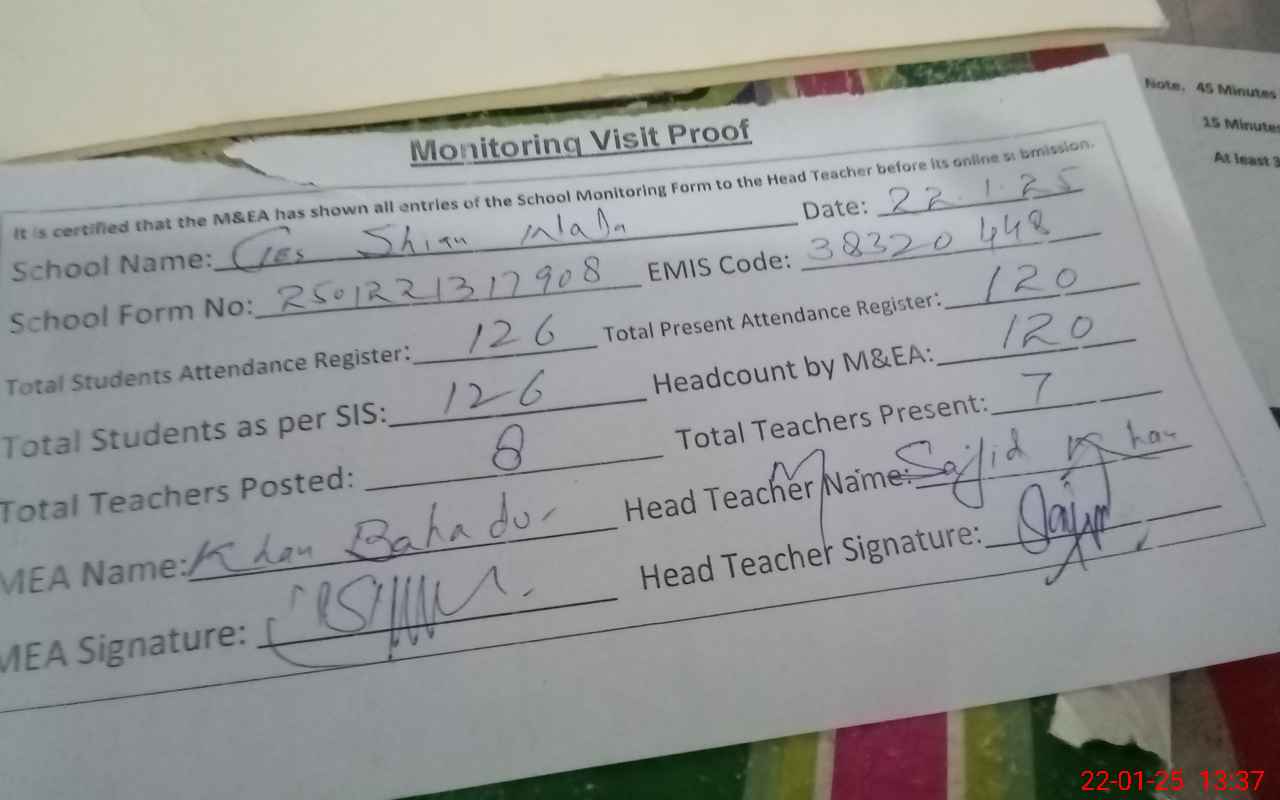 Note. 45 Minutes
15 Minutes
At least 3
Monitoring Visit Proof
It is certified that the M&EA has shown all entries of the School Monitoring Form to the Head Teacher before its online submission.
School Name: Shian Date: 22.1.25
School Form No: 2501221317908 EMIS Code: 38320448
Total Students Attendance Register: 126 Total Present Attendance Register: 120
Total Students as per SIS: 126 Headcount by M&EA: 120
Total Teachers Posted: 8 Total Teachers Present: 7
MEA Name: Khan Bahadur Head Teacher Name: Sajid Khan
MEA Signature: Head Teacher Signature:
22-01-25 13:37